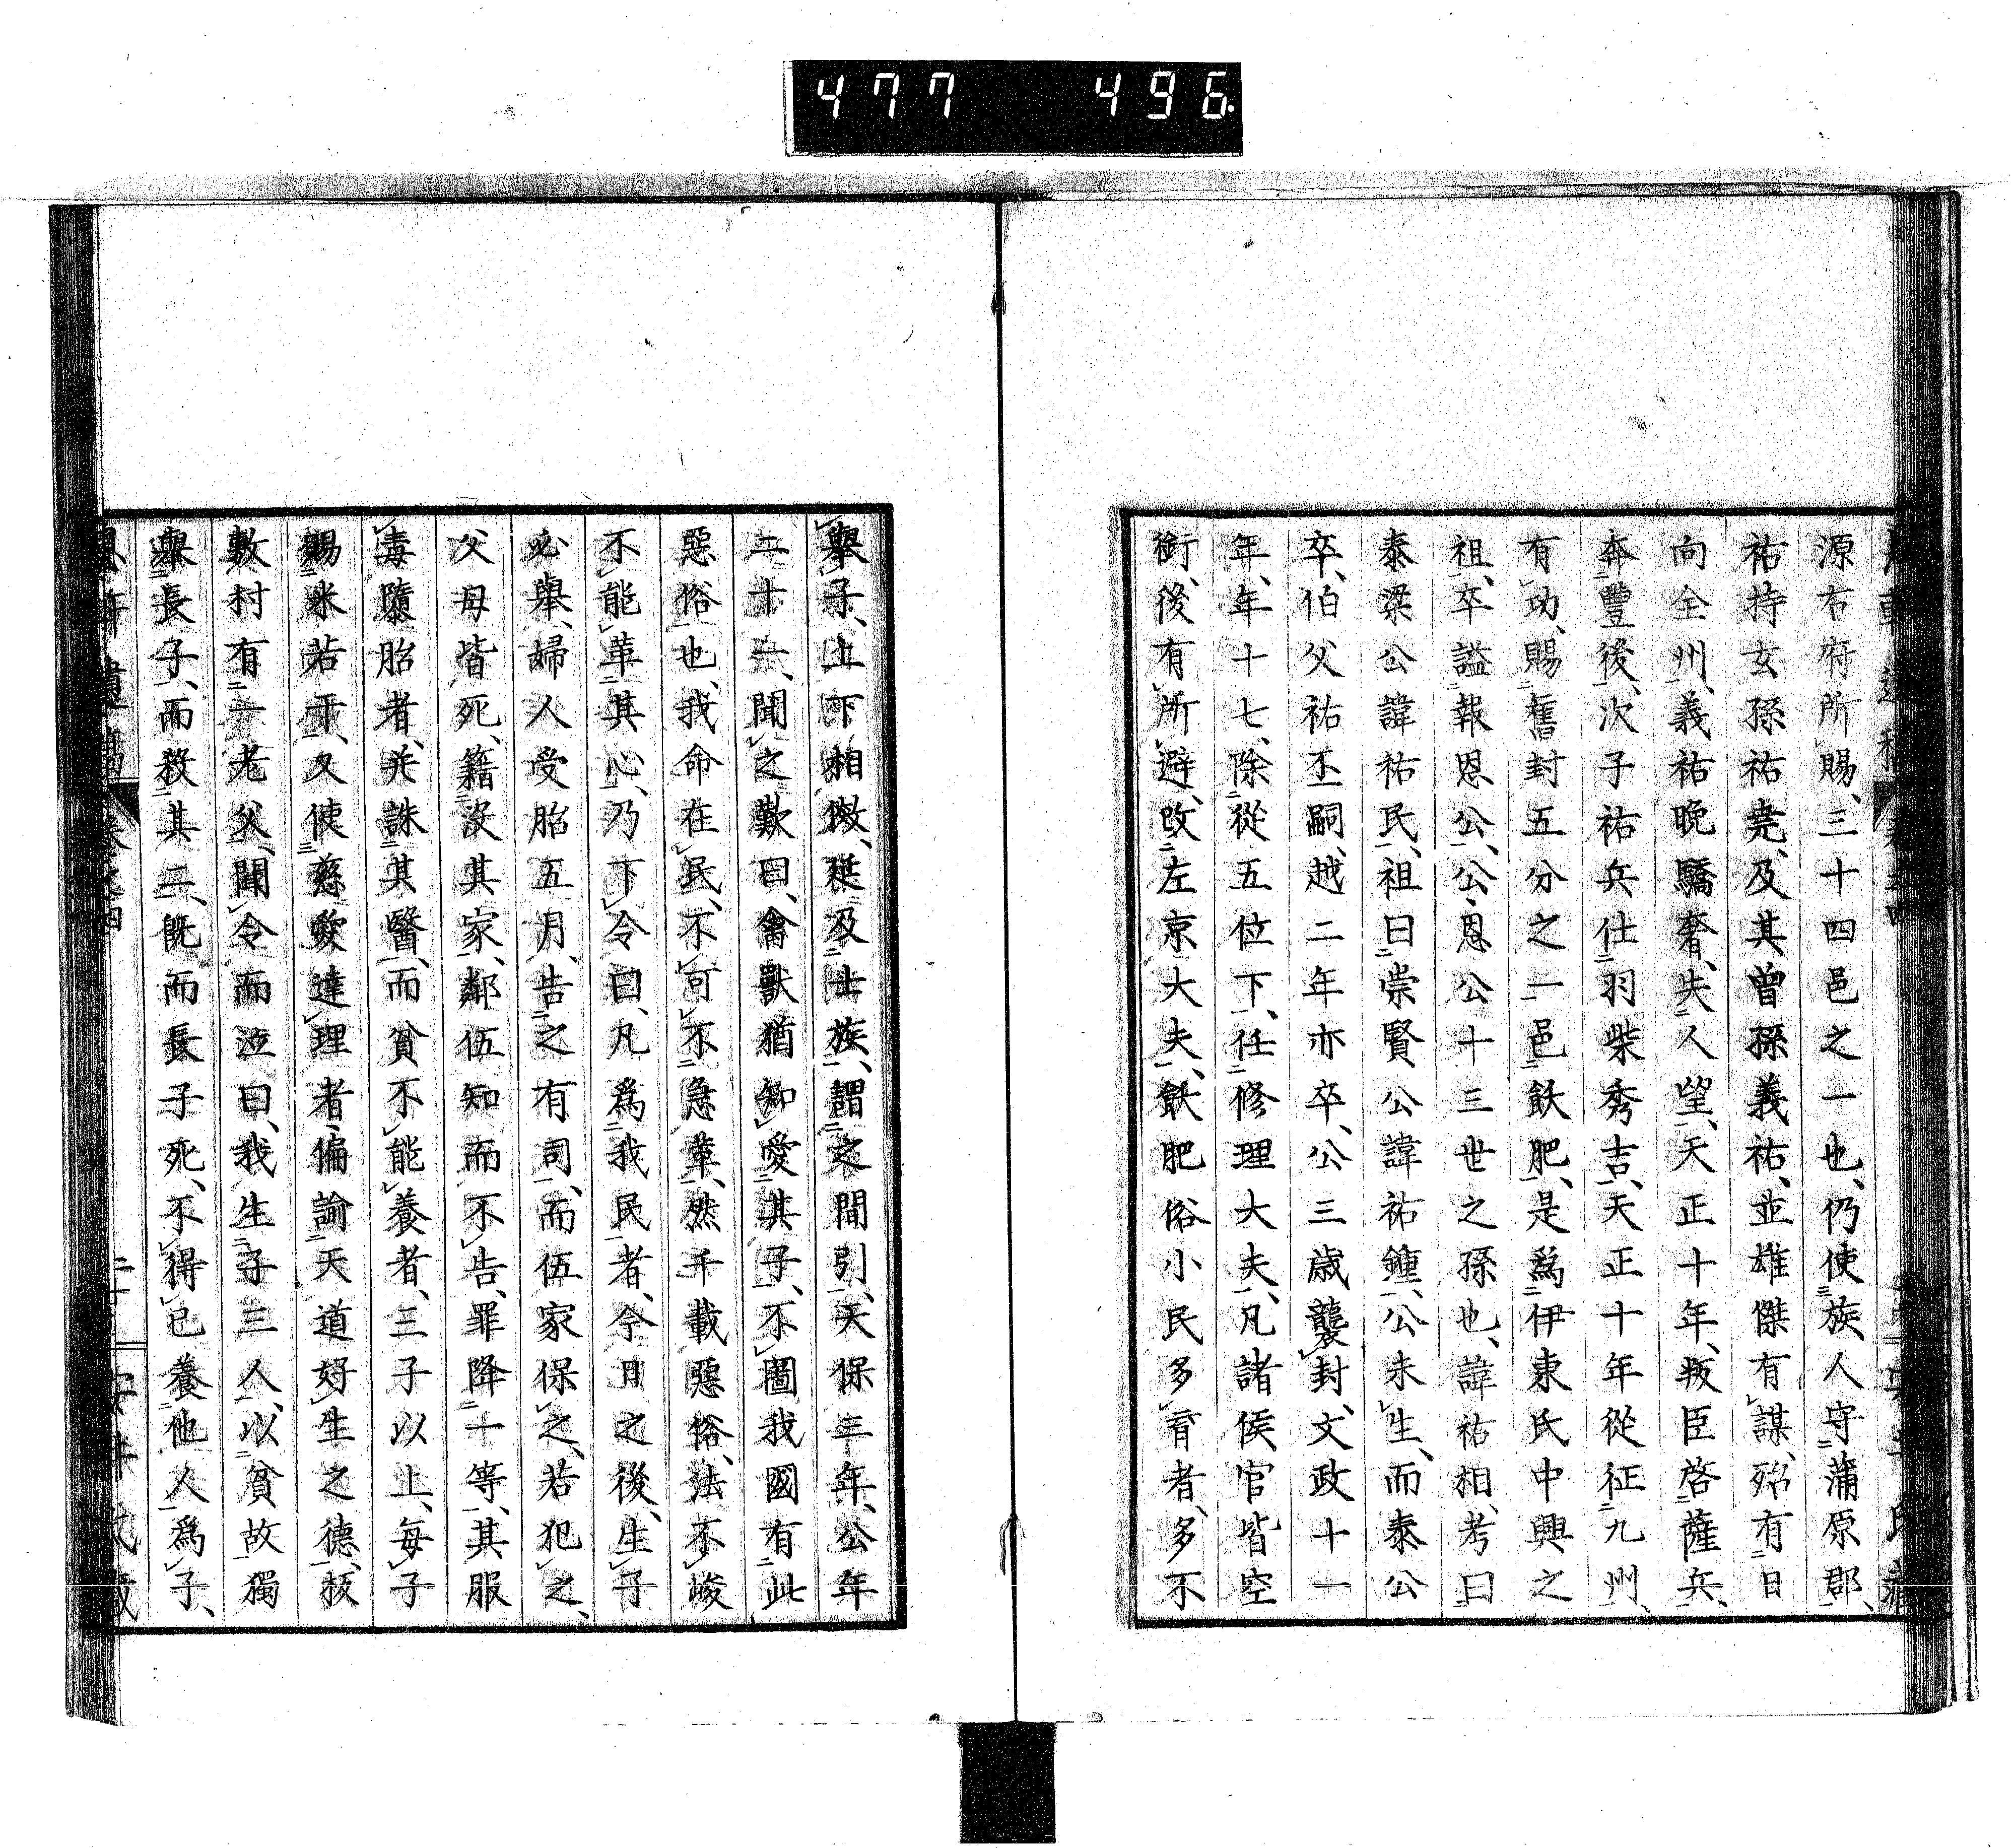 477 496
源右府所賜、三十四邑之一也、仍使族人守蒲原郡、
祐持玄孫祐堯、及其曾孫義祐、並雄傑有謀、殆有日
向全州、義祐晚驕奢、失人望、天正十年、叛臣啓薩兵、
奔豐後、次子祐兵仕羽柴秀吉、天正十年從征九州、
有功、賜舊封五分之一邑飫肥、是爲伊東氏中興之
祖、卒謚報恩公、公、恩公十三世之孫也、諱祐相、考曰
泰梁公諱祐民、祖曰崇賢公諱祐鍾、公未生、而泰公
卒、伯父祐丕嗣、越二年亦卒、公三歲襲封、文政十一
年、年十七、除從五位下、任修理大夫、凡諸侯官皆空
銜、後有所避、改左京大夫、飫肥俗小民多育者、多不
擧子、上下相傚、延及士族、謂之間引、天保三年、公年
二十一、聞之歎曰、禽獸猶知愛其子、不圖我國有此
惡俗也、我命在民、不可不急革、然千載惡俗、法不峻
不能革其心、乃下令曰、凡爲我民者、今日之後、生子
必擧、婦人受胎五月、告之有司、而伍家保之、若犯之、
父母皆死、籍沒其家、鄰伍知而不告、罪降一等、其服
毒墮胎者、并誅其醫、而貧不能養者、三子以上、每子
賜米若干、又使慈愛達理者、徧諭天道好生之德、板
敷村有一老父、聞令而泣曰、我生子三人、以貧故獨
擧長子、而殺其二、旣而長子死、不得已養他人爲子、